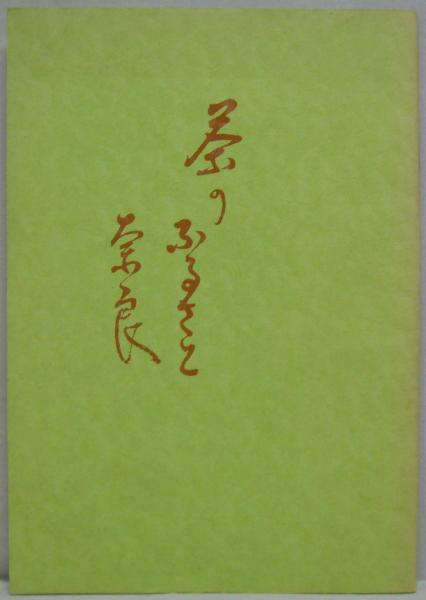 茶の
ふるさと
奈良